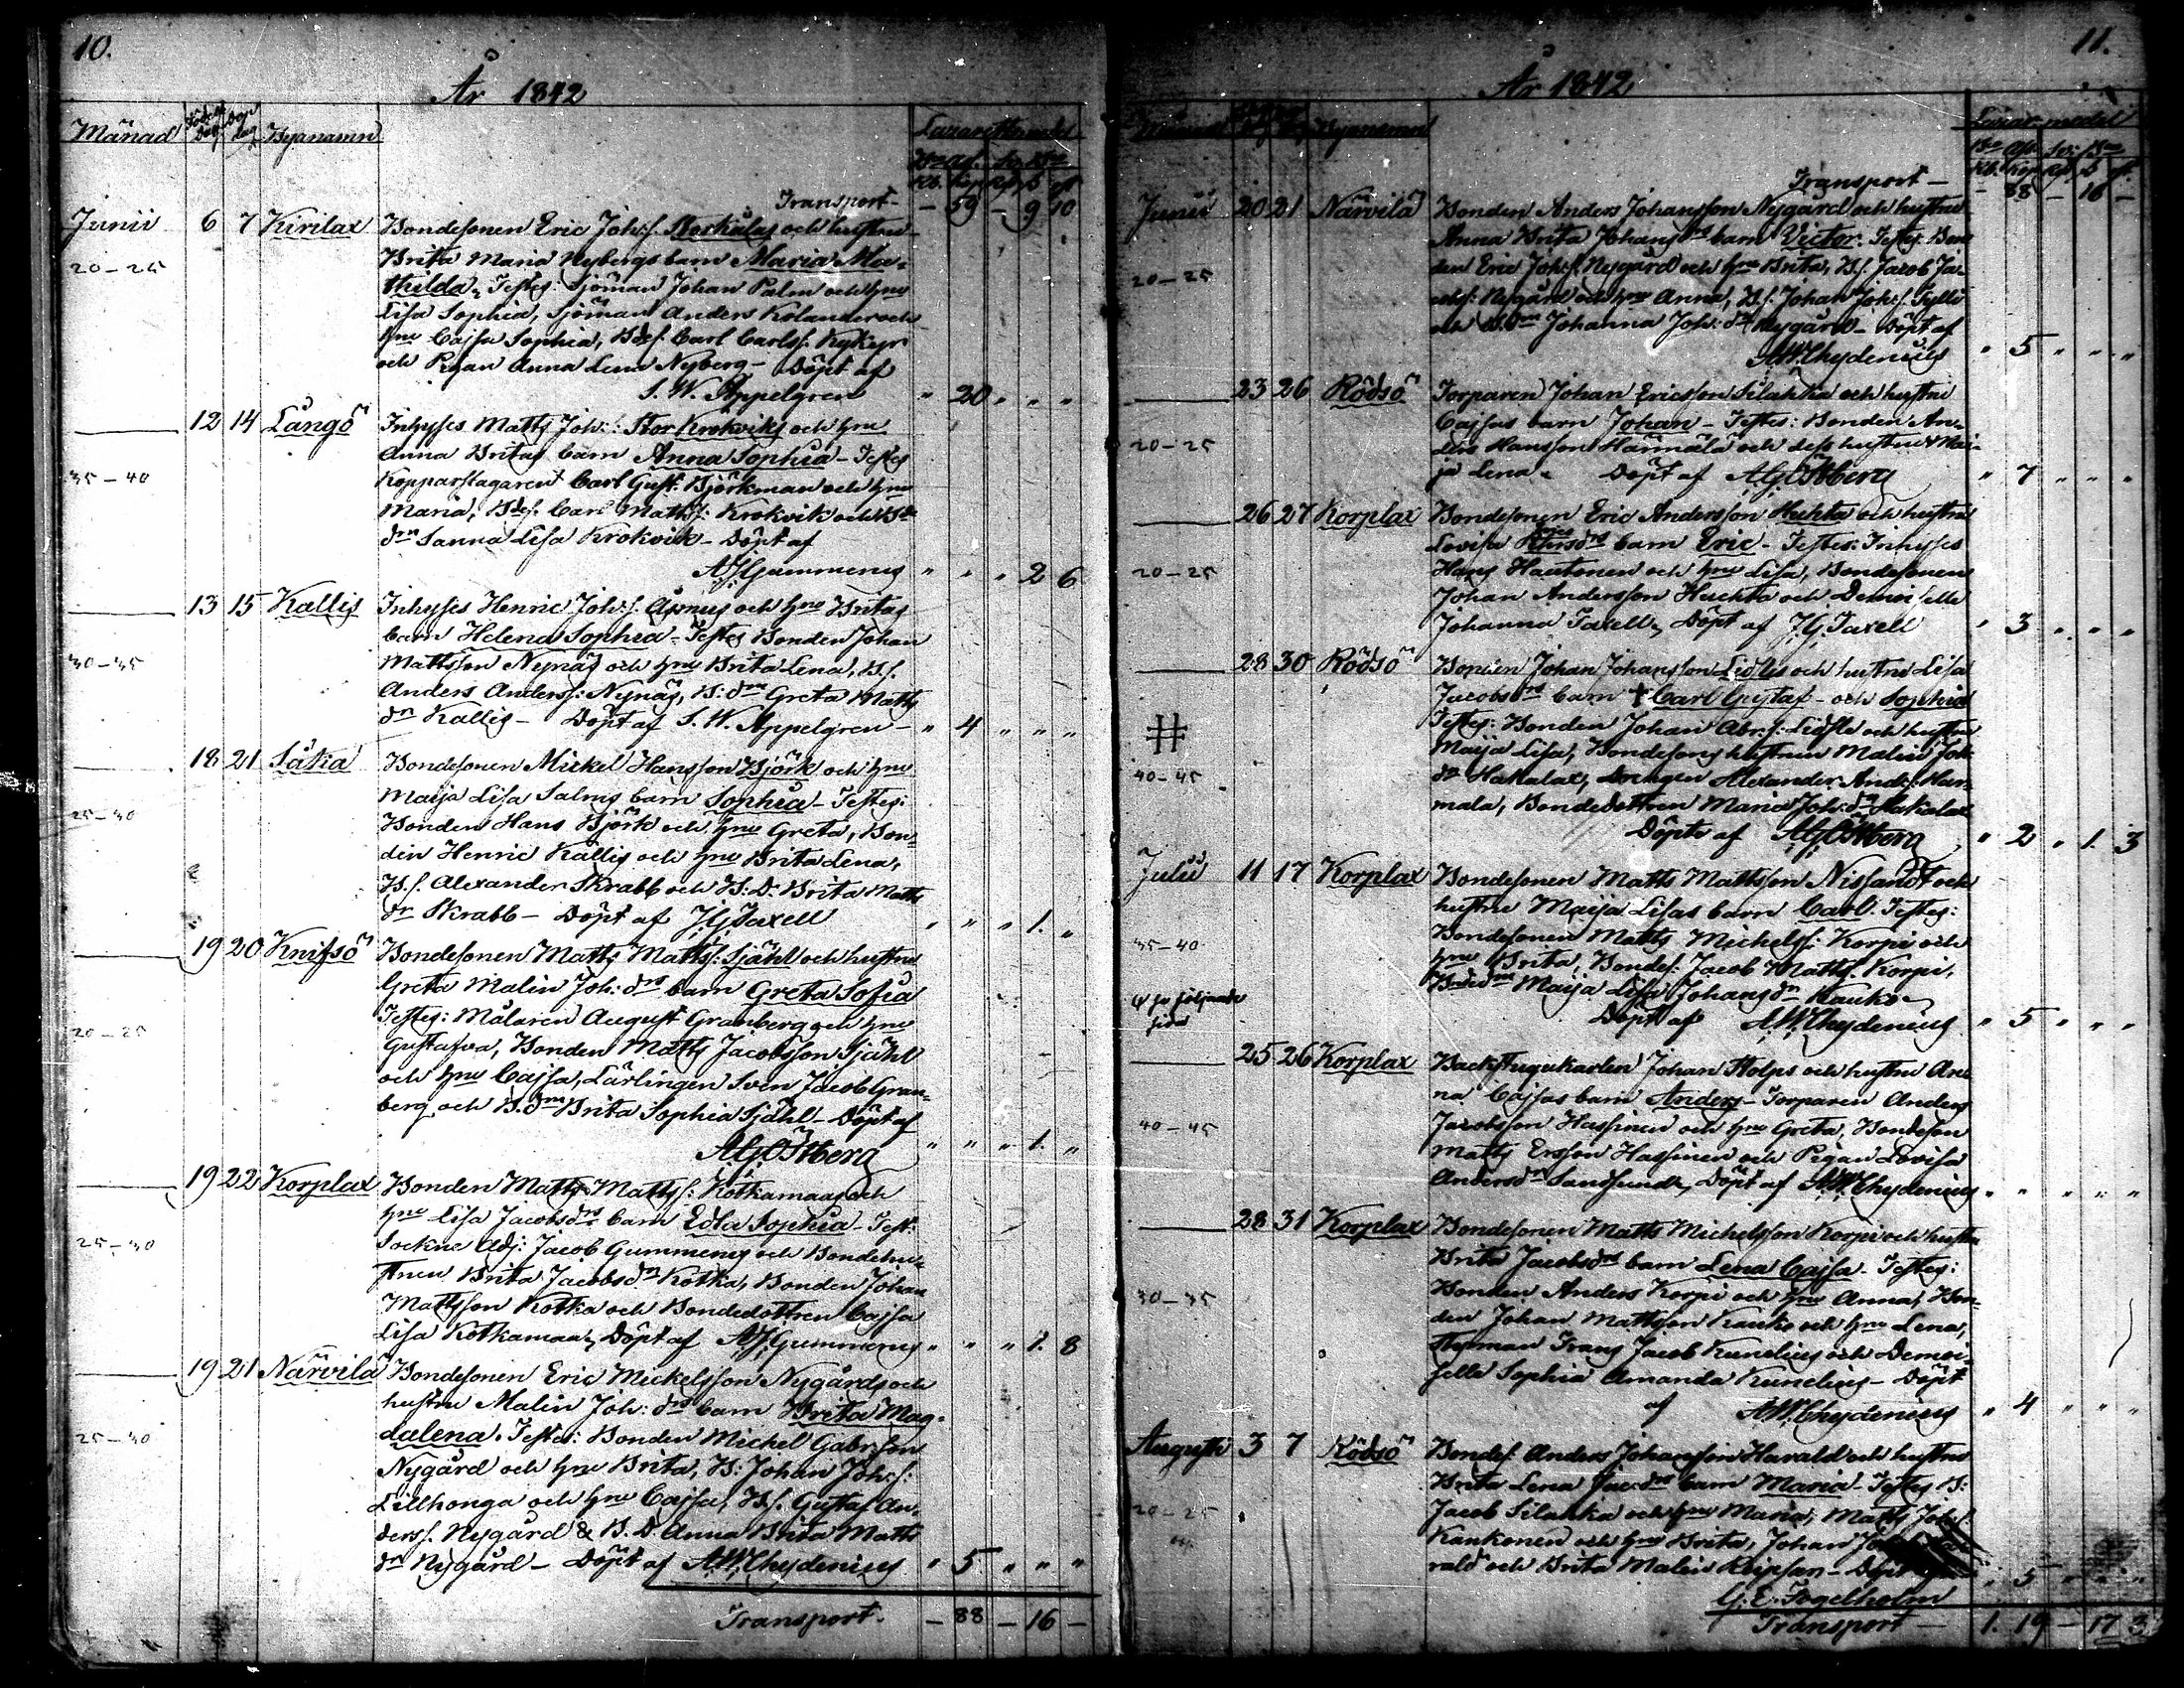 10.
År 1842
Månad Födelse Dag Dop dag Byanamn Lazaretts medel
Bco Ass. Sv. Bco
Rb. Kop Rd ß rst
Transport - - 59 - 9 10
Junii 6 7 Kirilax Bondesonen Eric Joh:s. Storkålas och hustru
Brita Maria Nybergs barn Maria Ma-
20-25
thilda, Testes: Sjöman Johan Palm och hru
Lisa Sophia, Sjöman Anders Kolander och
hru Cajsa Sophia, Bdes. Carl Carlss. Kykyr
och Pigan Anna Lena Nyberg - Döpt af
S. W. Appelgren " 20 " " "
12 14 Långö Inhyses Matts Joh:s. Stor Krokviks och hru
Anna Britas barn Anna Sophia - Testes
35-40
Kopparslagaren Carl Gust. Björkman och hru
Maria, Bdes. Carl Matts. Krokvik och Bde
drn Sanna Lisa Krokvik - Döpt af
A.J. Gummerus " " " 2 6
13 15 Kallis Inhyses Henric Joh:s. Åsmus och hru Britas
barn Helena Sophia - Testes Bonden Johan
30-35
Mattsson Nynäs och hru Brita Lena, B.s.
Anders Anderss: Nynäs, B: drn Greta Matts
dr Kallis - Döpt af S. W. Appelgren - " 4 " " "
18 21 Såka Bondesonen Mickel Hansson Björk och hru
Maija Lisa Salms barn Sophia - Testes:
25-30
Bonden Hans Björk och hru Greta, Bon-
den Henric Kallis och hru Brita Lena,
B.s. Alexander Skrabb och B: D. Brita Matts
dr Skrabb - Döpt af J.G. Taxell " " " 1. "
19 20 Knifsö Bondesonen Matts Matts: Sjähl och hustru
Greta Malin Joh: drs barn Greta Sofia
20-25
Testes: Målaren August Granberg och hru
Gustafva, Bonden Matts Jacobsson Sjähl
och hru Cajsa, Lärlingen Sven Jacob Gran-
berg och B. drn Brita Sophia Sjähl - Döpt af
A.G. Östberg " " " 1. "
19 22 Korplax Bonden Matts Matts: Kotkamaas och
hru Lisa Jacobsdrs barn Edla Sophia - Test.
25-30
Sockne Adj: Jacob Gummerus och Bondehu-
strun Brita Jacobsdr Kotka, Bonden Johan
Mattsson Kotka och Bondedottren Cajsa
Lisa Kotkamaa, Döpt af A.J. Gummerus " " " 1. 8
19 21 Närvilä Bondesonen Eric Mickelsson Nygårds och
hustru Malin Joh: drs barn Brita Mag-
25-30
dalena. Testes: Bonden Michel Gabr:son
Nygård och hru Brita, B: Johan Joh:s:
Lillhonga och hru Cajsa, B.s. Gustaf An-
derss. Nygård & B. D. Anna Brita Matts
dr Nygård - Döpt af A.W. Chydenius " 5 " " "
Transport. - 88 - 16 -
11.
År 1842
Månad Byanamn Lazar. medel
Bco Ass. Sv: Bco
Rb. Kop Rd ß rst.
Transport - - 88 - 16 -
Junii 20 21 Närvilä Bonden Anders Johansson Nygård och hustru
Anna Brita Johans drs barn Victor. Testes: Bon
20-25
den Eric Joh:s. Nygård och hru Brita, B.s. Jacob Ja-
cobs: Nygård och hru Anna, B.s. Johan Joh:s. Gylli
och B. drn Johanna Joh: dr Nygård - Döpt af
A.W. Chydenius " 5 " " "
23 26 Rödsö Torparen Johan Ericsson Silahka och hustru
Cajsas barn Johan - Testes: Bonden An-
20-25
ders Hansson Härmälä och dess hustru Mai-
ja Lena. Döpt af A.G. Östberg " 7 " " "
26 27 Korplax Bondesonen Eric Andersson Huhta och hustru
Lovisa drs barn Eric - Testes: Inhyses
20-25
Hans Hautonen och hru Lisa, Bondesonen
Johan Andersson Huhta och Demoiselle
Johanna Taxell, Döpt af J.G. Taxell " 3 " " "
28 30 Rödsö Bonden Johan Johansson Lidles och hustru Lisa
Jacobsdrs barn + Carl Gustaf - och Sophia
#
Testes: Bonden Johan Abr:s: Lidle och hustru
Maija Lisa, Bondesons hustrun Malin Joh
40-45
dr Hakalax, Drengen Alexander Ands: Har-
mala, Bondedottren Maria Joh: dr Hakalax
Döpte af A.G. Östberg " 2 " 1. 3
Julii 11 17 Korplax Bondesonen Matts Mattsson Nissandt och
hustru Maija Lisas barn Carl. Testes:
35-40
Bondesonen Matts Michelss. Korpi och
hru Brita, Bondes. Jacob Matts. Korpi,
Bde drn Maija Lisa Johans dr Kauko
följande
sida
Döpt af A.W. Chydenius " 5 " " "
25 26 Korplax Backstugukarlen Johan Stolps och hustru An-
na Cajsas barn Anders - Torparen Anders
40-45
Jacobsson Hassinen och hru Greta, Bondeson
Matts Ersson Hassinen och Pigan Lovisa
Andersdr Sandsund, Döpt af A.W. Chydenius " " " " "
28 31 Korplax Bondesonen Matts Michelsson Korpi och hustru
Brita Jacobsdrs barn Lena Cajsa - Testes:
30-35
Bonden Anders Korpi och hru Anna, Bon-
den Johan Mattsson Kauko och hru Lena,
Styrman Frans Jacob Kunelius och Demoi-
selle Sophia Amanda Kunelius - Döpt
af A.W. Chydenius " 4 " " "
Augusti 3 7 Rödsö Bondes. Anders Johansson Harald och hustru
Brita Lena Jac: drs barn Maria - Testes B:
20-25
Jacob Silahka och hru Maria, Matts Joh:s.
Kankonen och hru Brita, Johan
rald och Brita Malin Reipsar - Döpt
G. E. Fogelholm " 5 " " "
Transport - 1. 19 - 17 3